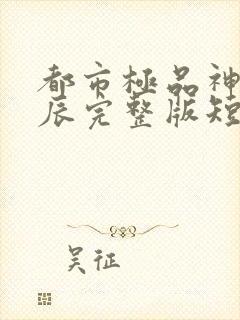 都市極品神
辰完整版短
吴征